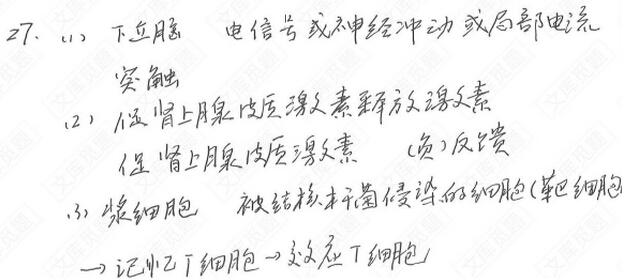 27. (1) 下丘脑 电信号或神经冲动或局部电流
突触
(2) 促肾上腺皮质激素释放激素
促肾上腺皮质激素 (负)反馈
(3) 浆细胞 被结核杆菌侵染的细胞(靶细胞
→记忆T细胞→效应T细胞